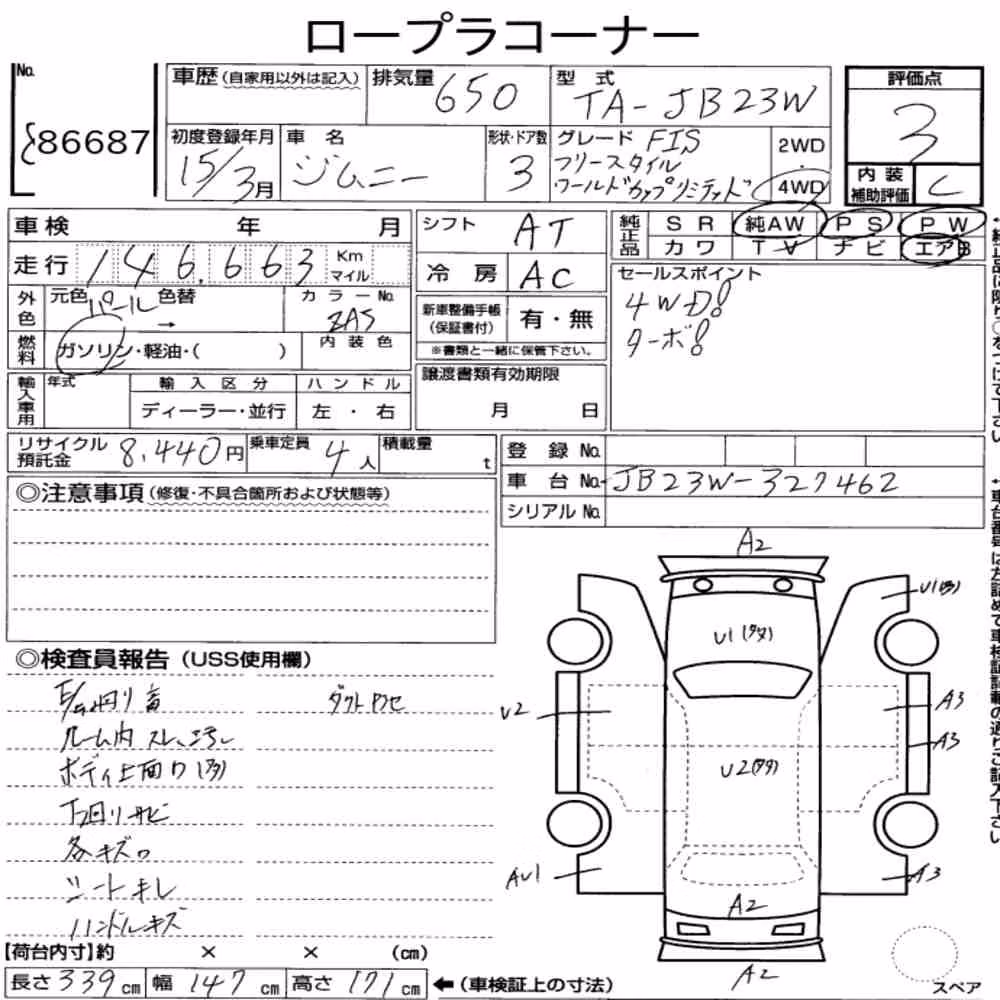 ロープラコーナー
No.
86687
車歴 (自家用以外は記入)
排気量 650
型式 TA-JB23W
評価点 3
初度登録年月 15/3月
車名 ジムニー
形状・ドア数 3
グレード FIS
フリースタイル
ワールドカップリミテッド
2WD
・
4WD
内装
補助評価 C
車検 年 月
走行 146,663 Km
マイル
外色 元色 パール 色替 →
カラーNo. ZAS
燃料 ガソリン・軽油・( )
内装色
輸入車用 年式
輸入区分
ハンドル
ディーラー・並行
左・右
シフト AT
冷房 AC
新車整備手帳
(保証書付) 有・無
※書類と一緒に保管下さい。
譲渡書類有効期限
月 日
純正品 SR 純AW PS PW
カワ TV ナビ エアB
セールスポイント
4WD!
ターボ!
リサイクル
預託金 8,440円
乗車定員 4人
積載量 t
登録No.
車台No. JB23W-327462
シリアルNo.
◎注意事項 (修復・不具合箇所および状態等)
◎検査員報告 (USS使用欄)
ルーム内スレ、汚し
下回りサビ
各キズ
シートキレ
ハンドルキズ
A2
U1
U1
U2
A3
A3
U2
AU1
A3
A2
A2
【荷台内寸】約 × × (cm)
長さ 339cm 幅 147cm 高さ 171cm ←(車検証上の寸法)
スペア